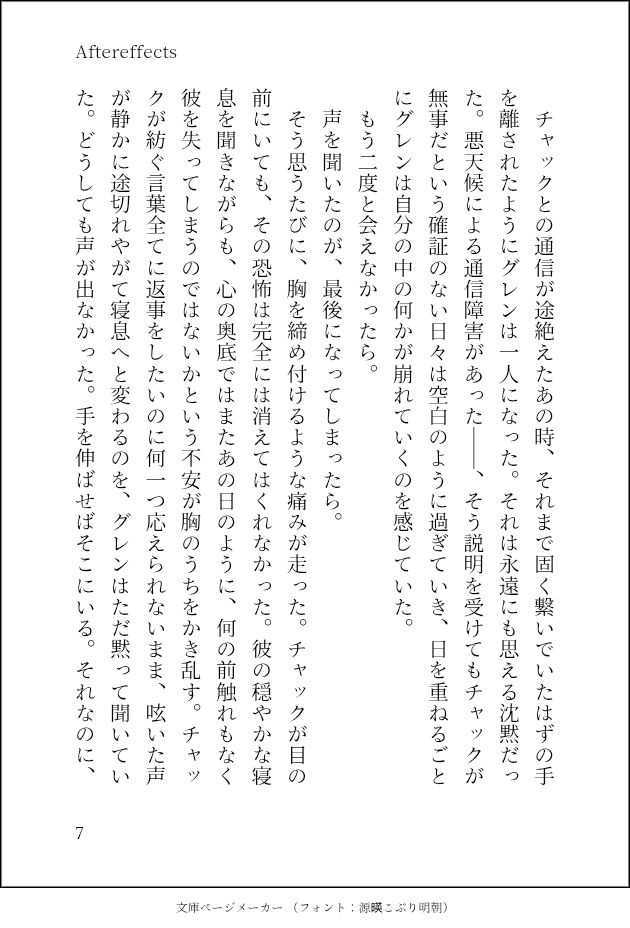 Aftereffects
　チャックとの通信が途絶えたあの時、それまで固く繋いでいたはずの手
を離されたようにグレンは一人になった。それは永遠にも思える沈黙だっ
た。悪天候による通信障害があった――、そう説明を受けてもチャックが
無事だという確証のない日々は空白のように過ぎていき、日を重ねるごと
にグレンは自分の中の何かが崩れていくのを感じていた。
　もう二度と会えなかったら。
　声を聞いたのが、最後になってしまったら。
　そう思うたびに、胸を締め付けるような痛みが走った。チャックが目の
前にいても、その恐怖は完全には消えてはくれなかった。彼の穏やかな寝
息を聞きながらも、心の奥底ではまたあの日のように、何の前触れもなく
彼を失ってしまうのではないかという不安が胸のうちをかき乱す。チャッ
クが紡ぐ言葉全てに返事をしたいのに何一つ応えられないまま、呟いた声
が静かに途切れやがて寝息へと変わるのを、グレンはただ黙って聞いてい
た。どうしても声が出なかった。手を伸ばせばそこにいる。それなのに、
7
文庫ページメーカー（フォント：源暎こぶり明朝）